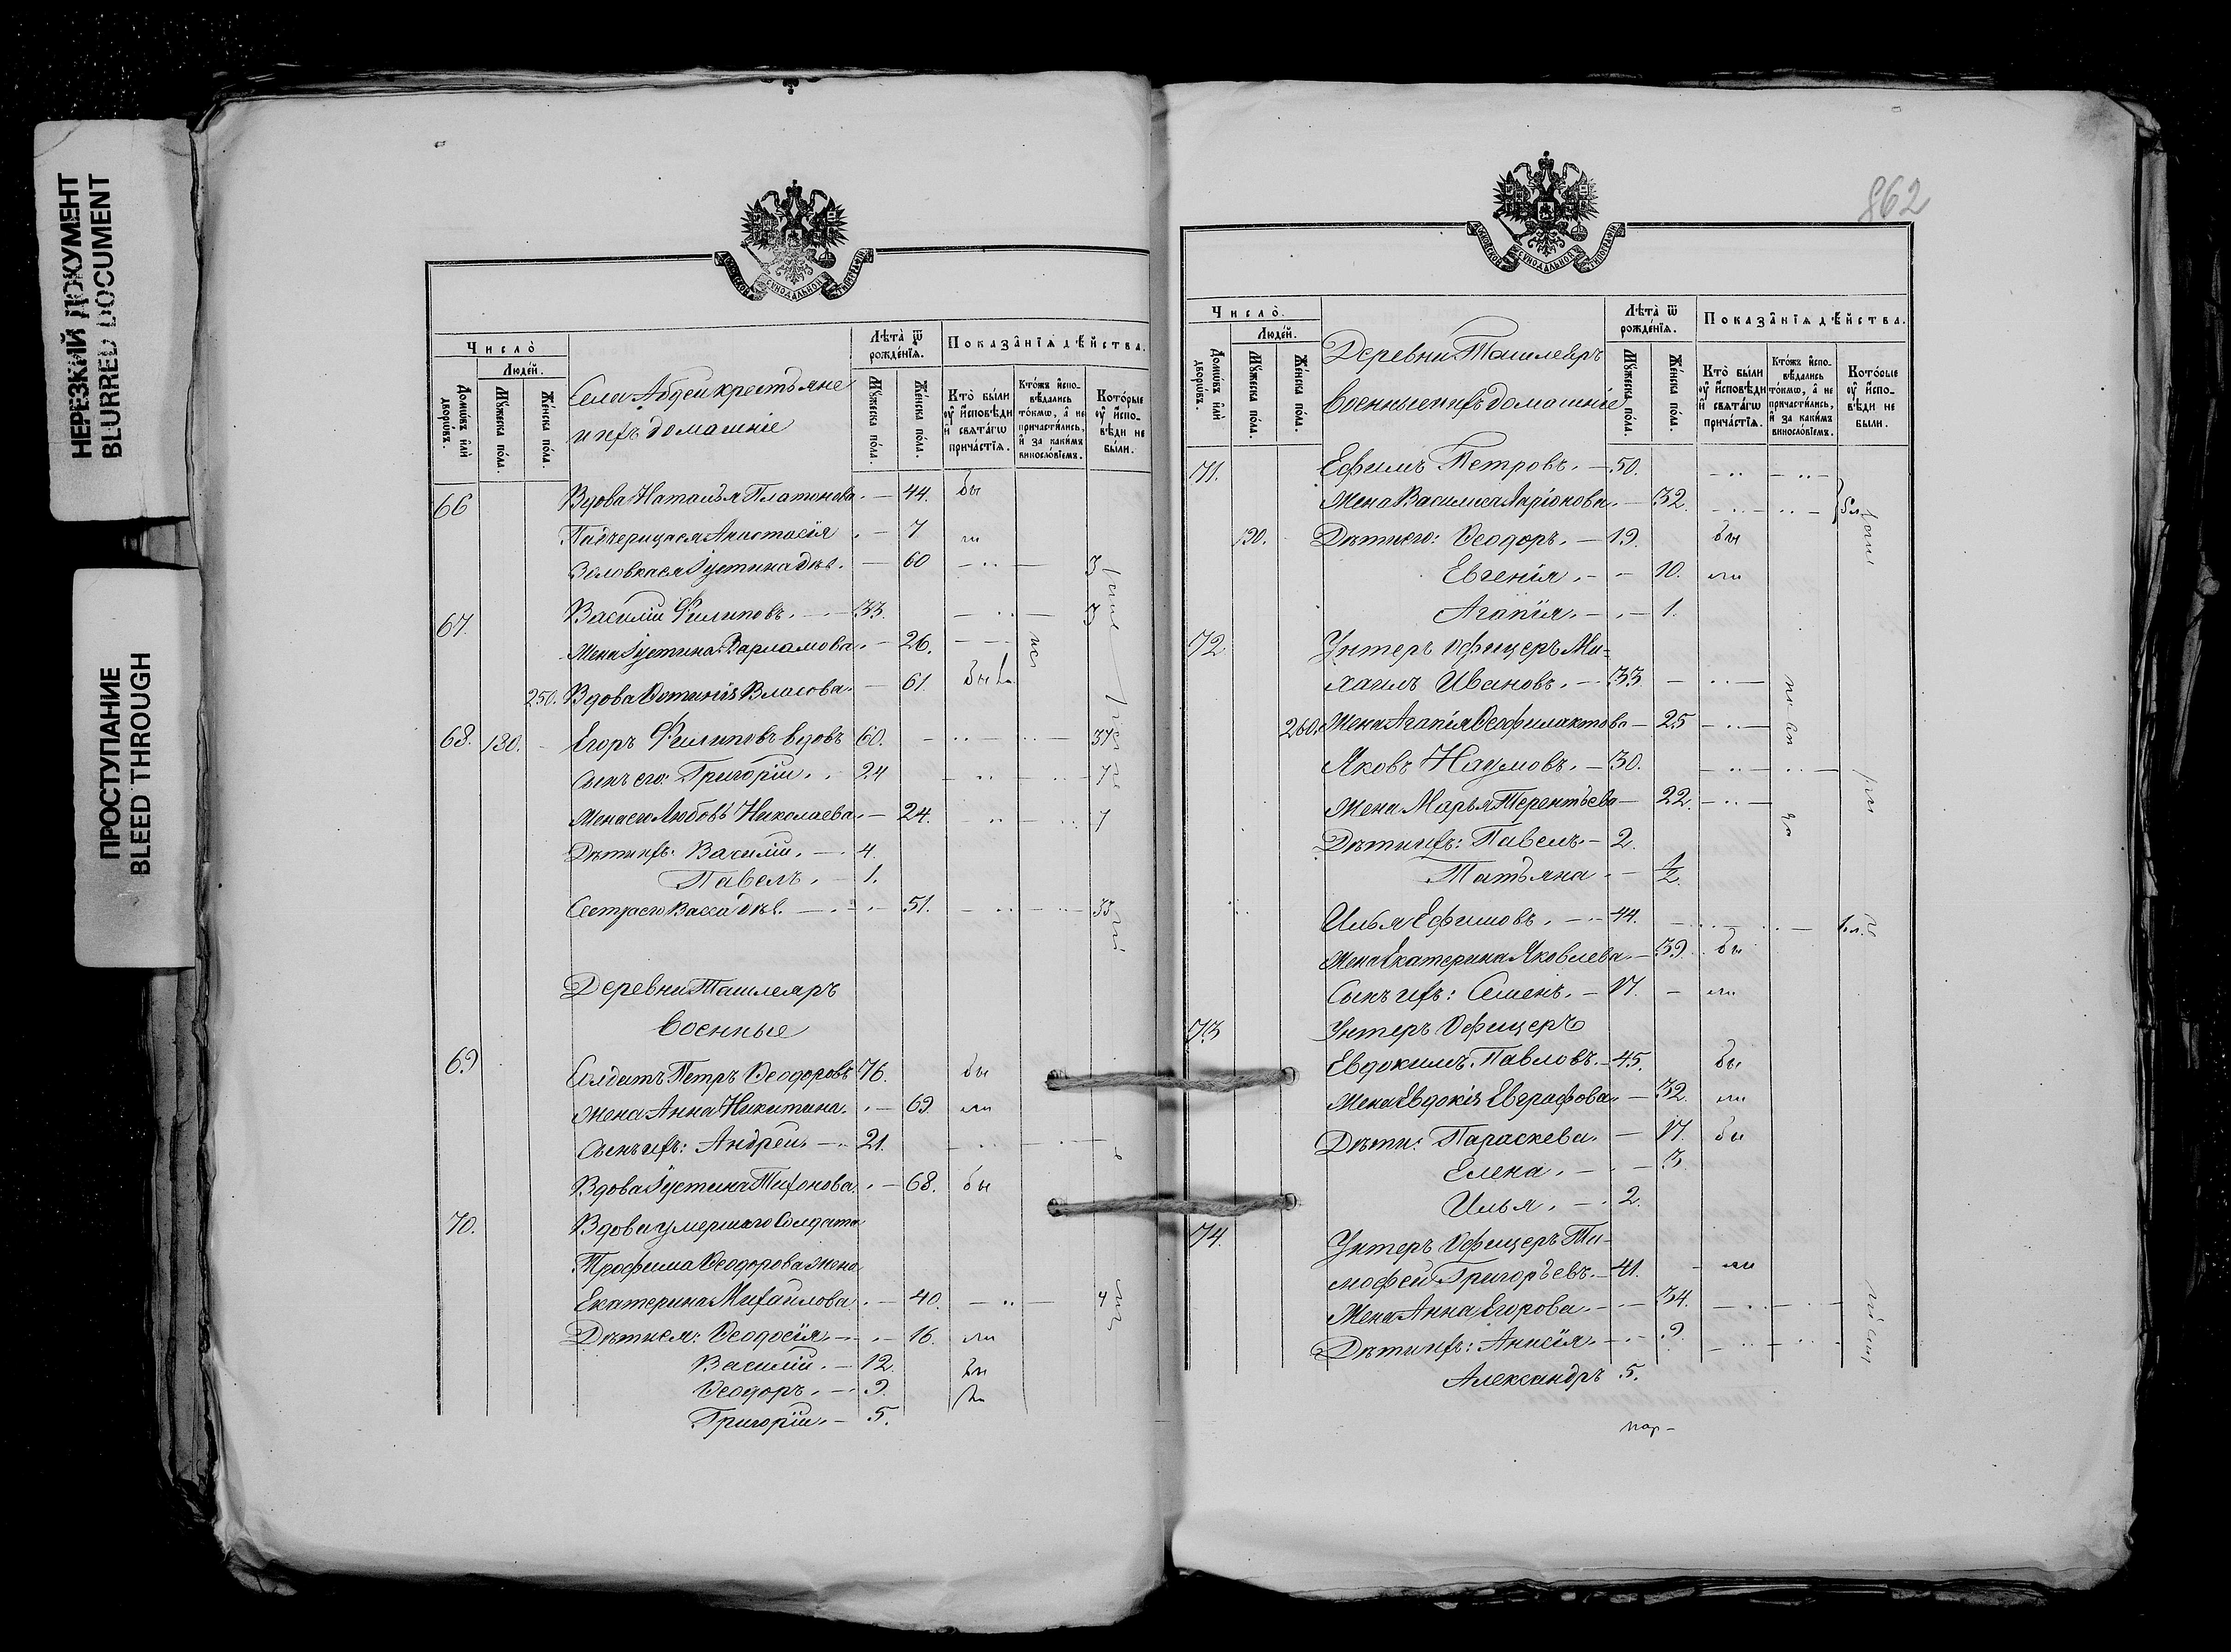 НЕРЕЗКИЙ ДОКУМЕНТ
BLURRED DOCUMENT
ПРОСТУПАНИЕ
BLEED THROUGH
МОСКОВСКОЙ СѴНОДАЛЬНОЙ ТИПОГРАФІИ
Число̀
Люде́й.
Домѡ́въ и҆лѝ дворѡ́въ.
Мꙋ́жеска по́ла.
Же́нска по́ла.
Села Абдеи крестьяне
и ихъ домашніе
Лѣ́та ѿ рожде́нїѧ.
Мꙋ́жеска по́ла.
Же́нска по́ла.
Показа̂нїѧ дѣ́йства.
Кто̀ бы́ли ᲂу҆ и҆́сповѣди и҆ свѧта́гѡ прича́стїѧ.
Кто́жъ и҆спо-вѣ́дались то́кмѡ, а҆ не причасти́лись, и҆ за каки́мъ винослѡ́вїемъ.
Кото́рые ᲂу҆ и҆́спо-вѣди не бы́ли.
66 Вдова Наталья Платонова. — 44. бы
Падчерица ея Анастасія . — 7 ли
Золовка ея Іустина дѣв. — 60 3
67. Василій Филиповъ. — 33. 3
Жена Іустина Варламова. — 26.
250. Вдова Ѳетинія Власова. — 61.
68. 180. Егоръ Филиповъ вдовъ 60.
Сынъ его: Григорій. . 24
Жена его Любовь Николаева. — 24. 7
Дѣти ихъ: Василій. — 4.
Павелъ. — 1.
Сестра его Васса дѣв. — 51.
Деревни Ташлеяръ
военные
69 Солдатъ Петръ Ѳеодоровъ 76. бы
Жена Анна Никитина. — 69. ли
Сынъ ихъ: Андрей. — 21.
Вдова Іустина Тихонова. — 68. бы
70. Вдова умершаго Солдата
Трофима Ѳеодорова жена
Екатерина Михайлова. — 40. 4
Дѣти ея: Ѳеодосія — 16. ли
Василій. — 12.
Ѳеодоръ. — 9.
Григорій. — 5.
862
МОСКОВСКОЙ СѴНОДАЛЬНОЙ ТИПОГРАФІИ
Число̀.
Люде́й.
Домѡ́въ и҆лѝ дворѡ́въ.
Мꙋ́жеска по́ла.
Же́нска по́ла.
Деревни Ташлеяръ
военные и ихъ домашніе
Лѣ́та ѿ рожде́нїѧ.
Мꙋ́жеска по́ла.
Же́нска по́ла.
Показа̂нїѧ дѣ́йства.
Кто̀ бы́ли ᲂу҆ и҆́сповѣди и҆ свѧта́гѡ прича́стїѧ.
Кто́жъ и҆спо-вѣ́дались то́кмѡ, а҆ не причасти́лись, и҆ за каки́мъ винослѡ́вїемъ.
Кото́рые ᲂу҆ и҆́спо-вѣди не бы́ли.
71. Ефимъ Петровъ. — 50.
Жена Василиса Ларіонова. — 32.
190. Дѣти его: Ѳеодоръ. — 19. бы
Евгенія. — 10. ли
Агапія. — 1.
72 Унтеръ Офицеръ Ми-
хаилъ Ивановъ. — 33
260. Жена Агапія Ѳеофилактова — 25
Яковъ Наумовъ. — 30.
Жена Марья Терентьева — 22.
Дѣти ихъ: Павелъ. — 2.
Татьяна . — 1/2.
Илья Ефимовъ. — 44.
Жена Екатерина Яковлева. — 39. бы
Сынъ ихъ: Семенъ. — 17. — ли
73 Унтеръ Офицеръ
Евдокимъ Павловъ. — 45. бы
Жена Евдокія Евграфова. — 32. ли
Дѣти: Параскева. — 17. бы
Елена. — 3
Илья. — 2.
74. Унтеръ Офицеръ Ти-
мофей Григорьевъ. — 41. ли
Жена Анна Егорова. — 34.
Дѣти ихъ: Анисія. — 9.
Александръ 5.